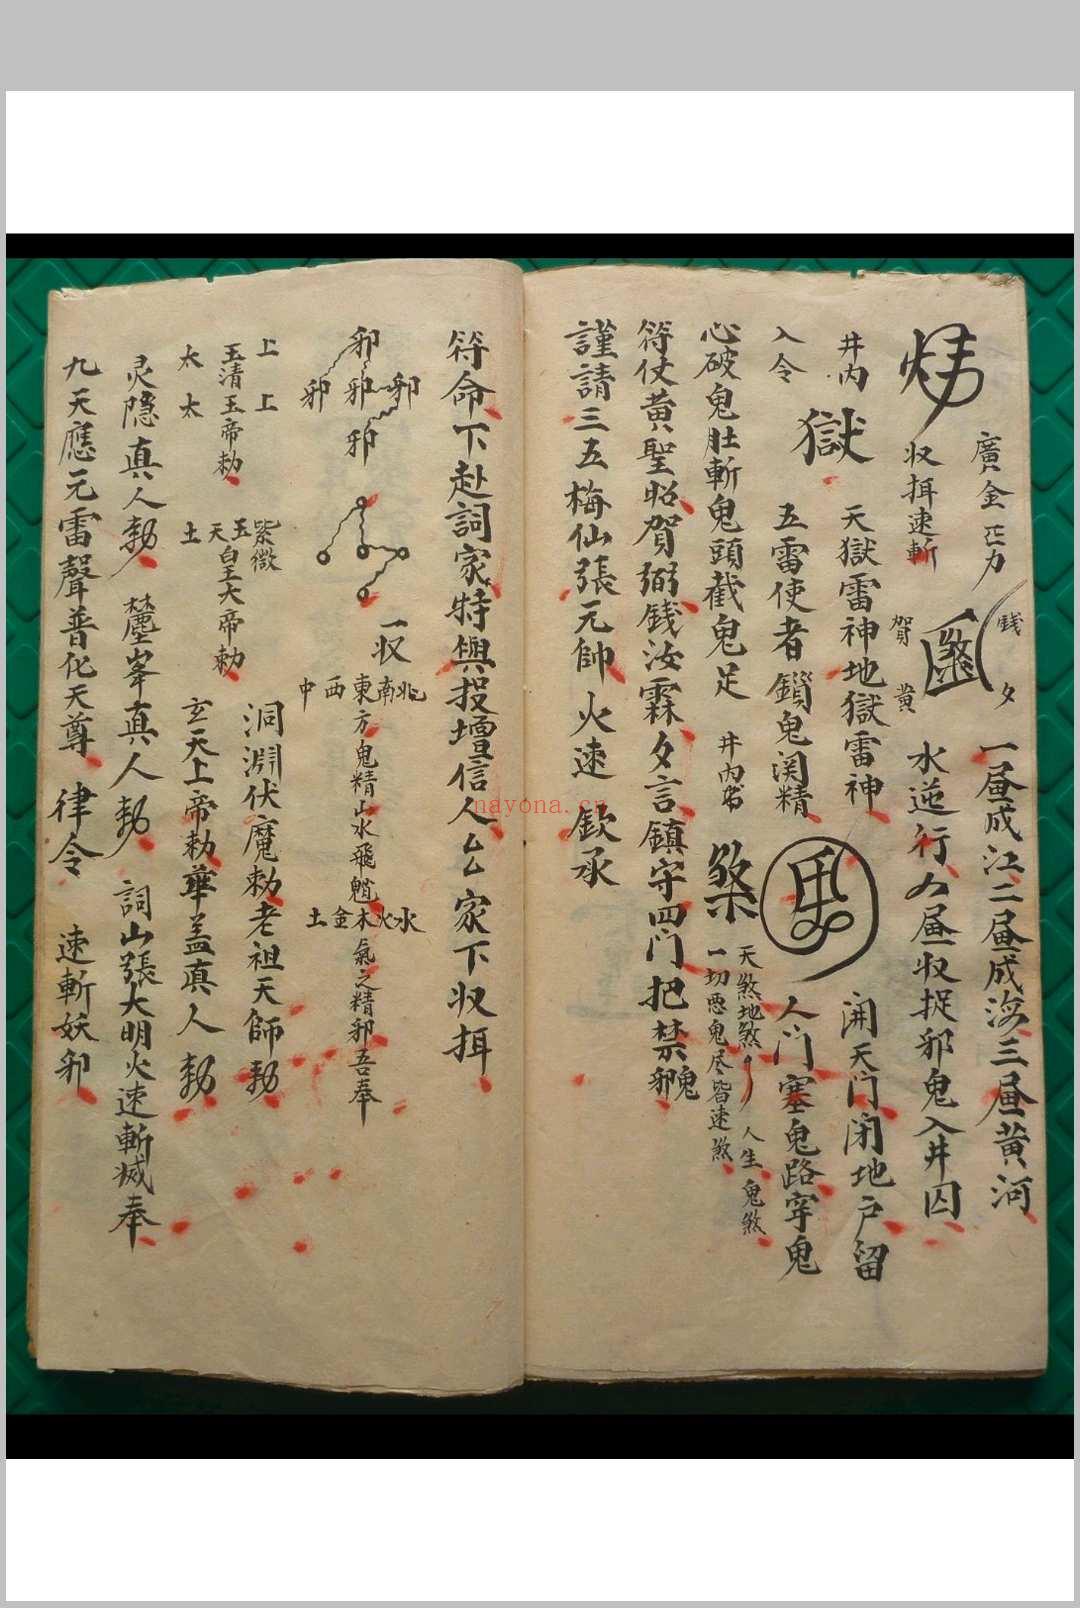 廣金
收挕速斬
賀
黄
銭
夕
一畫成江二畫成海三畫黄河
水逆行 畫收捉邪鬼入井囚
井内
獄
天獄雷神地獄雷神
開天门闭地户留
入令
五雷使者鎖鬼関精
人门塞鬼路穿鬼
心破鬼肚斬鬼頭截鬼足
井内書
煞
天煞地煞
人生鬼煞
一切悪鬼尽皆速煞
符仗黄聖昭賀弼銭汝霖夕言鎮守四门把禁邪鬼
謹請三五梅仙張元帥火速欽承
符命下赴詞家特與投壇信人厶厶家下収挕
邪
邪 邪 邪
邪
一収
中西東南北
方鬼精山水飛魈
土金木火水
氣之精邪吾奉
上上
玉清玉帝勅
太太
紫微
玉
天皇大帝勅
土
洞渊伏魔勅老祖天師勅
玄天上帝勅華盖真人勅
灵隐真人勅
峯真人勅
詞山張大明火速斬滅奉
九天應元雷聲普化天尊
律令
速斬妖邪
nayona.cn